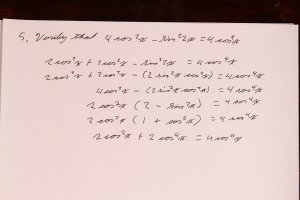 5, Verify that 4 cos²x - sin²2x = 4 cos⁴x
2 cos²x + 2 cos²x - sin²2x = 4 cos⁴x
2 cos²x + 2 cos²x - (2 sin²x cos²x) = 4 cos⁴x
4 cos²x - (2 sin²x cos²x) = 4 cos⁴x
2 cos²x (2 - sin²x) = 4 cos⁴x
2 cos²x (1 + cos²x) = 4 cos⁴x
2 cos²x + 2 cos⁴x = 4 cos⁴x